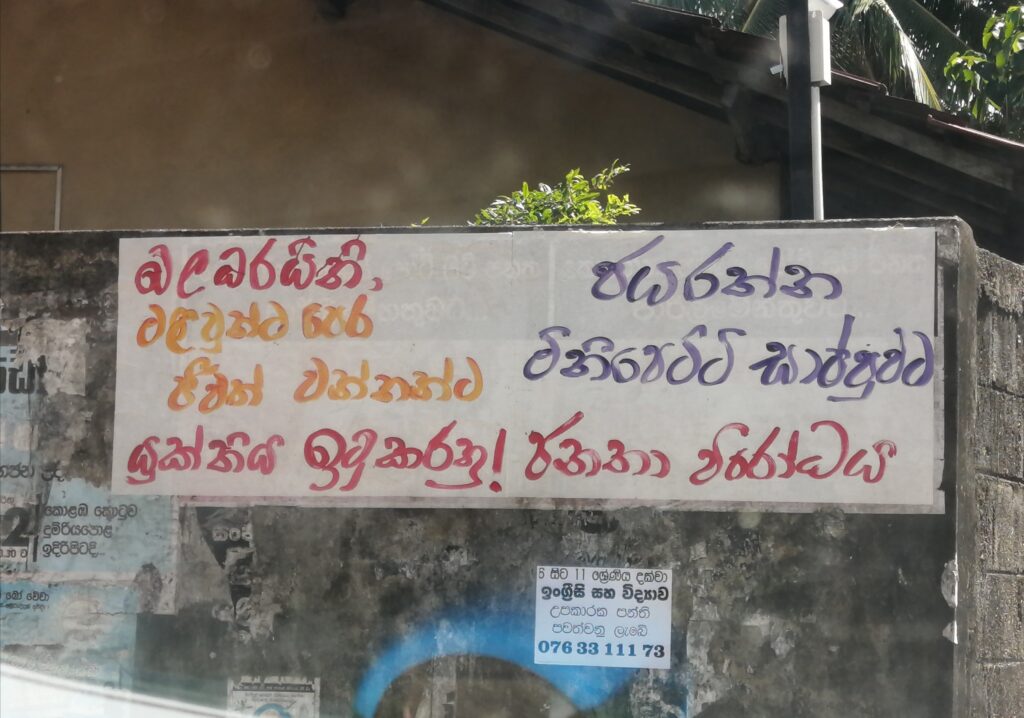 බලධරයිනි,
මළවුන්ට පෙර
ජීවත් වන්නන්ට
යුක්තිය ඉටුකරනු!
ජයරත්න
මිනිපෙට්ටි සාප්පුවට
ජනතා විරෝධය
2
කොළඹ කොටුව
දුම්රියපොළ
ඉදිරිපිටදි...
6 සිට 11 ශ්‍රේණිය දක්වා
ඉංග්‍රීසි සහ විද්‍යාව
උපකාරක පන්ති
පවත්වනු ලැබේ
076 33 111 73